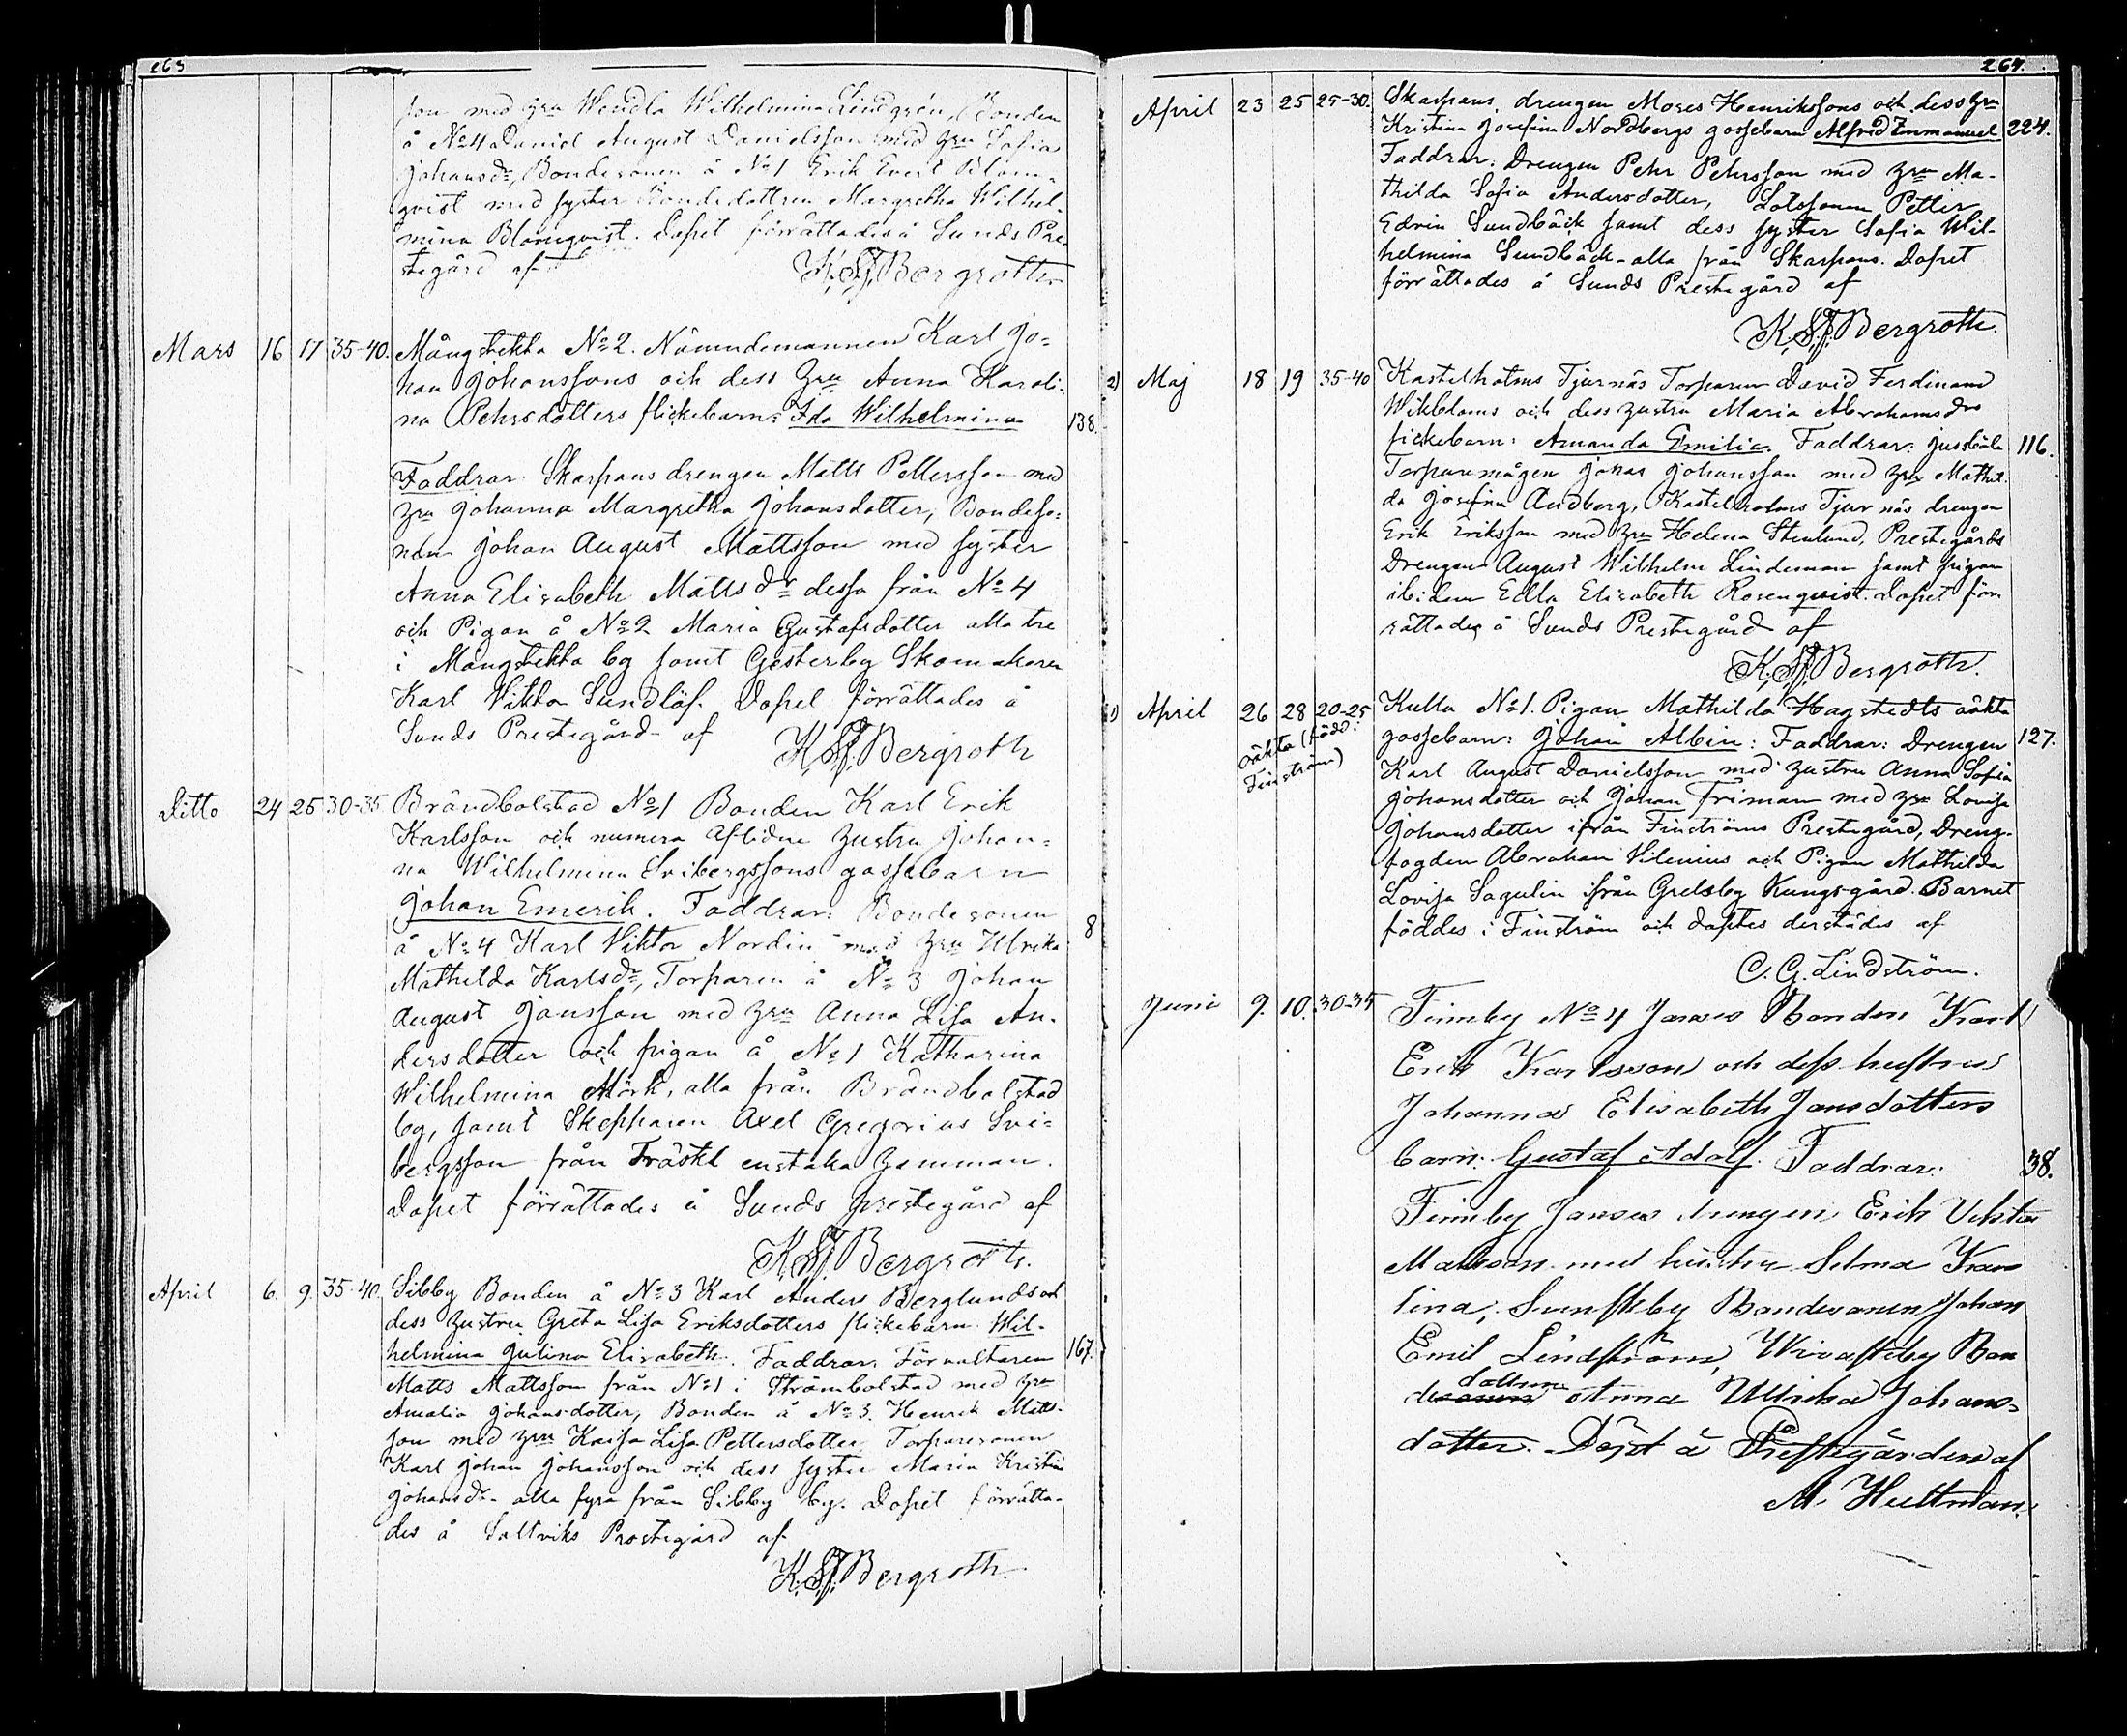 263
son med hru Wendla Wilhelmina Lindgrén, Bonden
å No 4 Daniel August Danielsson med hru Sofia
Johansdr, Bondesonen å No 1 Erik Evert Blom-
qvist med syster Bondedottren Margretha Wilhel-
mina Blomqvist. Dopet förrättades å Sunds Pre-
stegård af K. S. J. Bergroth
Mars 16 17 35-40. Mångstekta No 2. Nämndemannen Karl Jo-
han Johanssons och dess hru Anna Karoli-
na Pehrsdotters flickebarn: Ida Wilhelmina 138.
Faddrar. Skarpans drengen Matts Pettersson med
hru Johanna Margretha Johansdotter, Bondeso-
nen Johan August Mattsson med syster
Anna Elisabeth Mattsdr dessa från No 4
och Pigan å No 2 Maria Gustafsdotter alla tre
i Mångstekta by samt Gesterby Skomakaren
Karl Viktor Sundlöf. Dopet förrättades å
Sunds Prestegård af K. S. J. Bergroth
Ditto 24 25 30-35 Brändbolstad No 1 Bonden Karl Erik
Karlsson och numera aflidne hustru Johan-
na Wilhelmina Svibergssons gossebarn
Johan Emerik. Faddrar: Bondesonen 8
å No 4 Karl Viktor Nordin med hru Ulrika
Mathilda Karlsdr, Torparen å No 3 Johan
August Jansson med hru Anna Lisa An-
dersdotter och pigan å No 1 Katharina
Wilhelmina Mörk, alla från Brändbolstad
by, samt Skepparen Axel Gregorius Svi-
bergsson från Träskl enstaka hemman.
Dopet förrättades å Sunds prestegård af
K. S. J. Bergroth.
April 6. 9. 35-40. Sibby Bonden å No 3 Karl Anders Berglunds och
dess hustru Greta Lisa Eriksdotters flickebarn Wil-
helmina Julina Elisabeth. Faddrar. Förvaltaren 167.
Matts Mattsson från No 1 i Strömbolstad med hru
Amalia Johansdotter, Bonden å No 3. Henrik Matts-
son med hru Kaisa Lisa Pettersdotter, Torparesonen
Karl Johan Johansson och dess syster Maria Kristin
Johansdr. alla fyra från Sibby by. Dopet förrätta-
des å Saltviks Prostegård af
K. S. J. Bergroth.
264.
April 23 25 25-30. Skarpans, drengen Moses Henrikssons och dess hru
Kristina Josefina Nordbergs gossebarn Alfrid Emmanuel 224.
Faddrar: Drengen Pehr Pehrsson med hru Ma-
thilda Sofia Andersdotter, Lotssonen Petter
Edvin Sundbäck samt dess syster Sofia Wil-
helmina Sundbäck - alla från Skarpans. Dopet
förrättades å Sunds Prestegård af
K. S. J. Bergroth.
2) Maj 18 19 35-40 Kastelholms Tjurnäs Torparen David Ferdinand
Wikbloms och dess hustru Maria Abrahamsdrs
flickebarn: Amanda Emilia. Faddrar: Jussböle 116.
Torparemågen Jonas Johansson med hru Mathil-
da Josefina Andberg, Kastelholms Tjurnäs drengen
Erik Eriksson med hru Helena Stenlund, Prestegårds
Drengen August Wilhelm Lindeman samt pigan
ibidem Edla Elisabeth Rosenqvist. Dopet för-
rättades å Sunds Prestegård af
K. S. J. Bergroth.
1) April 26 28 20-25 Kulla No 1. Pigan Mathilda Hagstedts oäkta
oäkta (född i
Finström)
gossebarn: Johan Albin: Faddrar: Drengen 127.
Karl August Danielsson med hustru Anna Sofia
Johansdotter och Johan Friman med hru Lovisa
Johansdotter ifrån Finströms Prestegård, Dreng-
fogden Abraham Vilenius och Pigan Mathilda
Lovisa Sagulin ifrån Grelsby Kungsgård. Barnet
föddes i Finström och döptes derstädes af
C. G. Lindström.
Juni 9. 10. 30-35 Finnby No 4 Janses Bonden Karl
Erik Karlsson och dess hustru
Johanna Elisabeth Jansdotters
barn: Gustaf Adolf. Faddrar: 38.
Finnby Janses drengen Erik Viktor
Mattsson med hustru Selma Karo
lina, Sunskby Bondesonen Johan
Emil Lindström, Wivasteby Bon
dottren
desonen Anna Ullrika Johans-
dotter. Döpt å Prestegården af
M. Hultman.